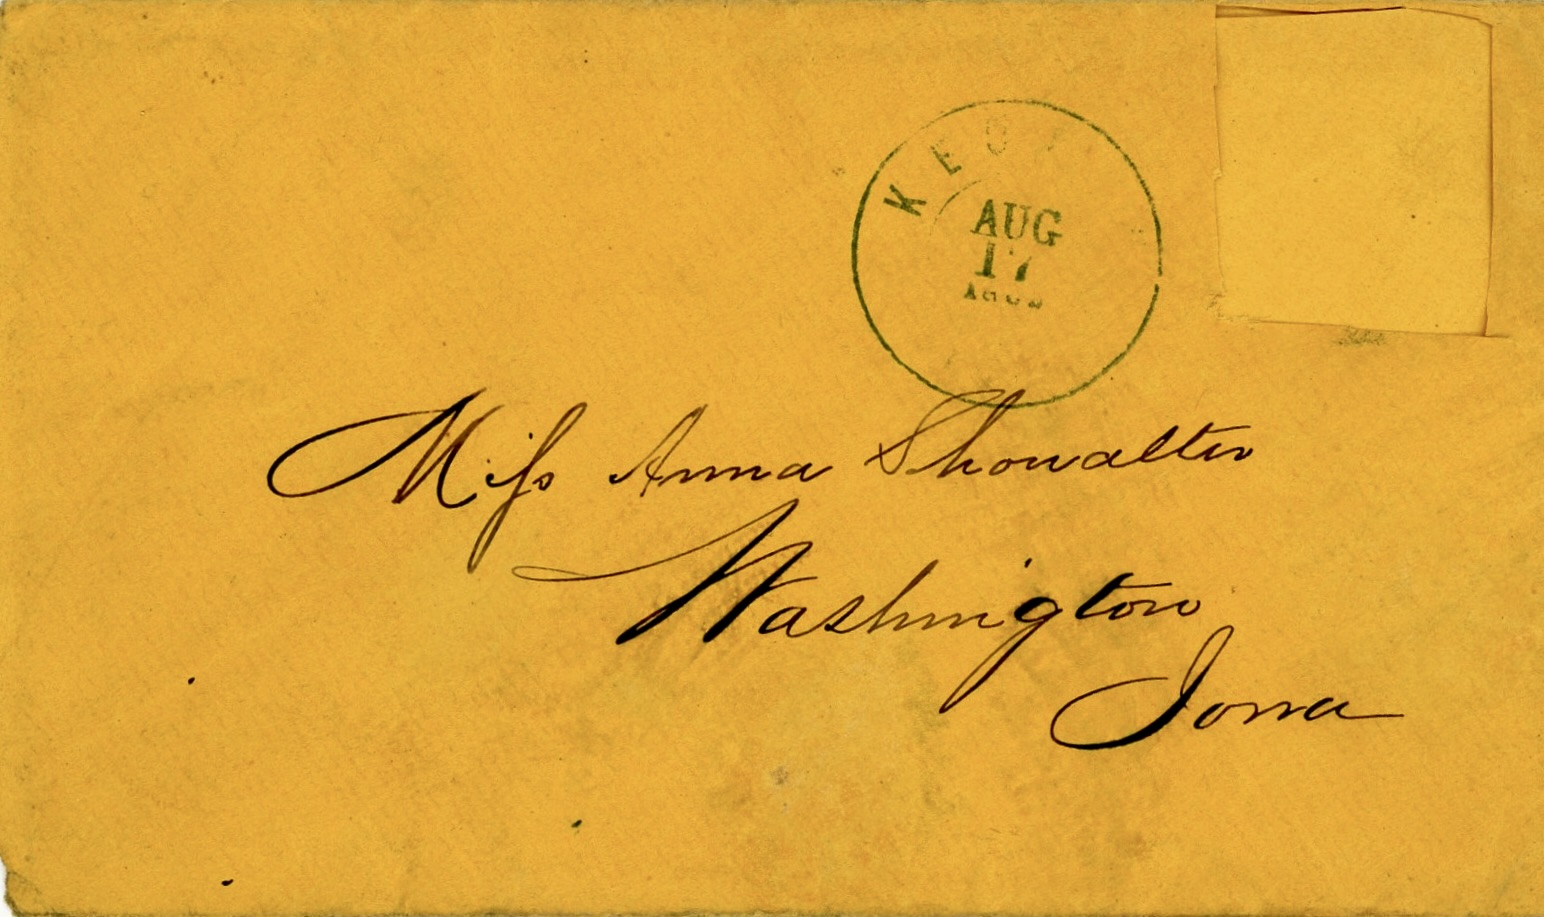 AUG
17
Miss Anna Showalter
Washington
Iowa